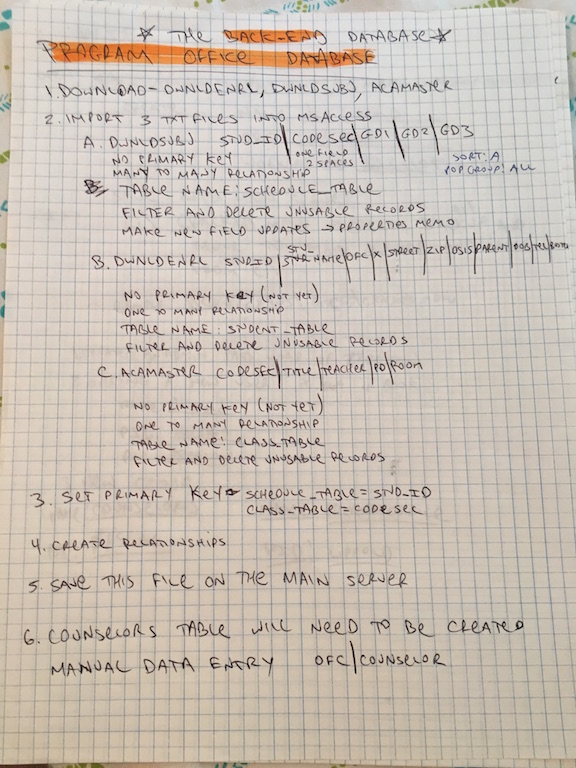 ☆ THE BACK-END DATABASE ☆
PROGRAM OFFICE DATABASE
1. DOWNLOAD - DWNLDENRL, DWNLDSUBJ, ACAMASTER
2. IMPORT 3 TXT FILES INTO MSACCESS
A. DWNLDSUBJ STUD_ID | CODESEC | GD1 | GD2 | GD3
ONE FIELD
2 SPACES
NO PRIMARY KEY
MANY TO MANY RELATIONSHIP
SORT: A
POP GROUP: ALL
TABLE NAME: SCHEDULE_TABLE
FILTER AND DELETE UNUSABLE RECORDS
MAKE NEW FIELD UPDATES → PROPERTIES MEMO
B. DWNLDENRL STUD_ID | STU_NAME | OFC | X | STREET | ZIP | OSIS | PARENT | DOB | TEL |
NO PRIMARY KEY (NOT YET)
ONE TO MANY RELATIONSHIP
TABLE NAME: STUDENT_TABLE
FILTER AND DELETE UNUSABLE RECORDS
C. ACAMASTER CODESEC | TITLE | TEACHER | PD | ROOM
NO PRIMARY KEY (NOT YET)
ONE TO MANY RELATIONSHIP
TABLE NAME: CLASS_TABLE
FILTER AND DELETE UNUSABLE RECORDS
3. SET PRIMARY KEY - SCHEDULE_TABLE = STUD_ID
CLASS_TABLE = CODESEC
4. CREATE RELATIONSHIPS
5. SAVE THIS FILE ON THE MAIN SERVER
6. COUNSELORS TABLE WILL NEED TO BE CREATED
MANUAL DATA ENTRY OFC | COUNSELOR